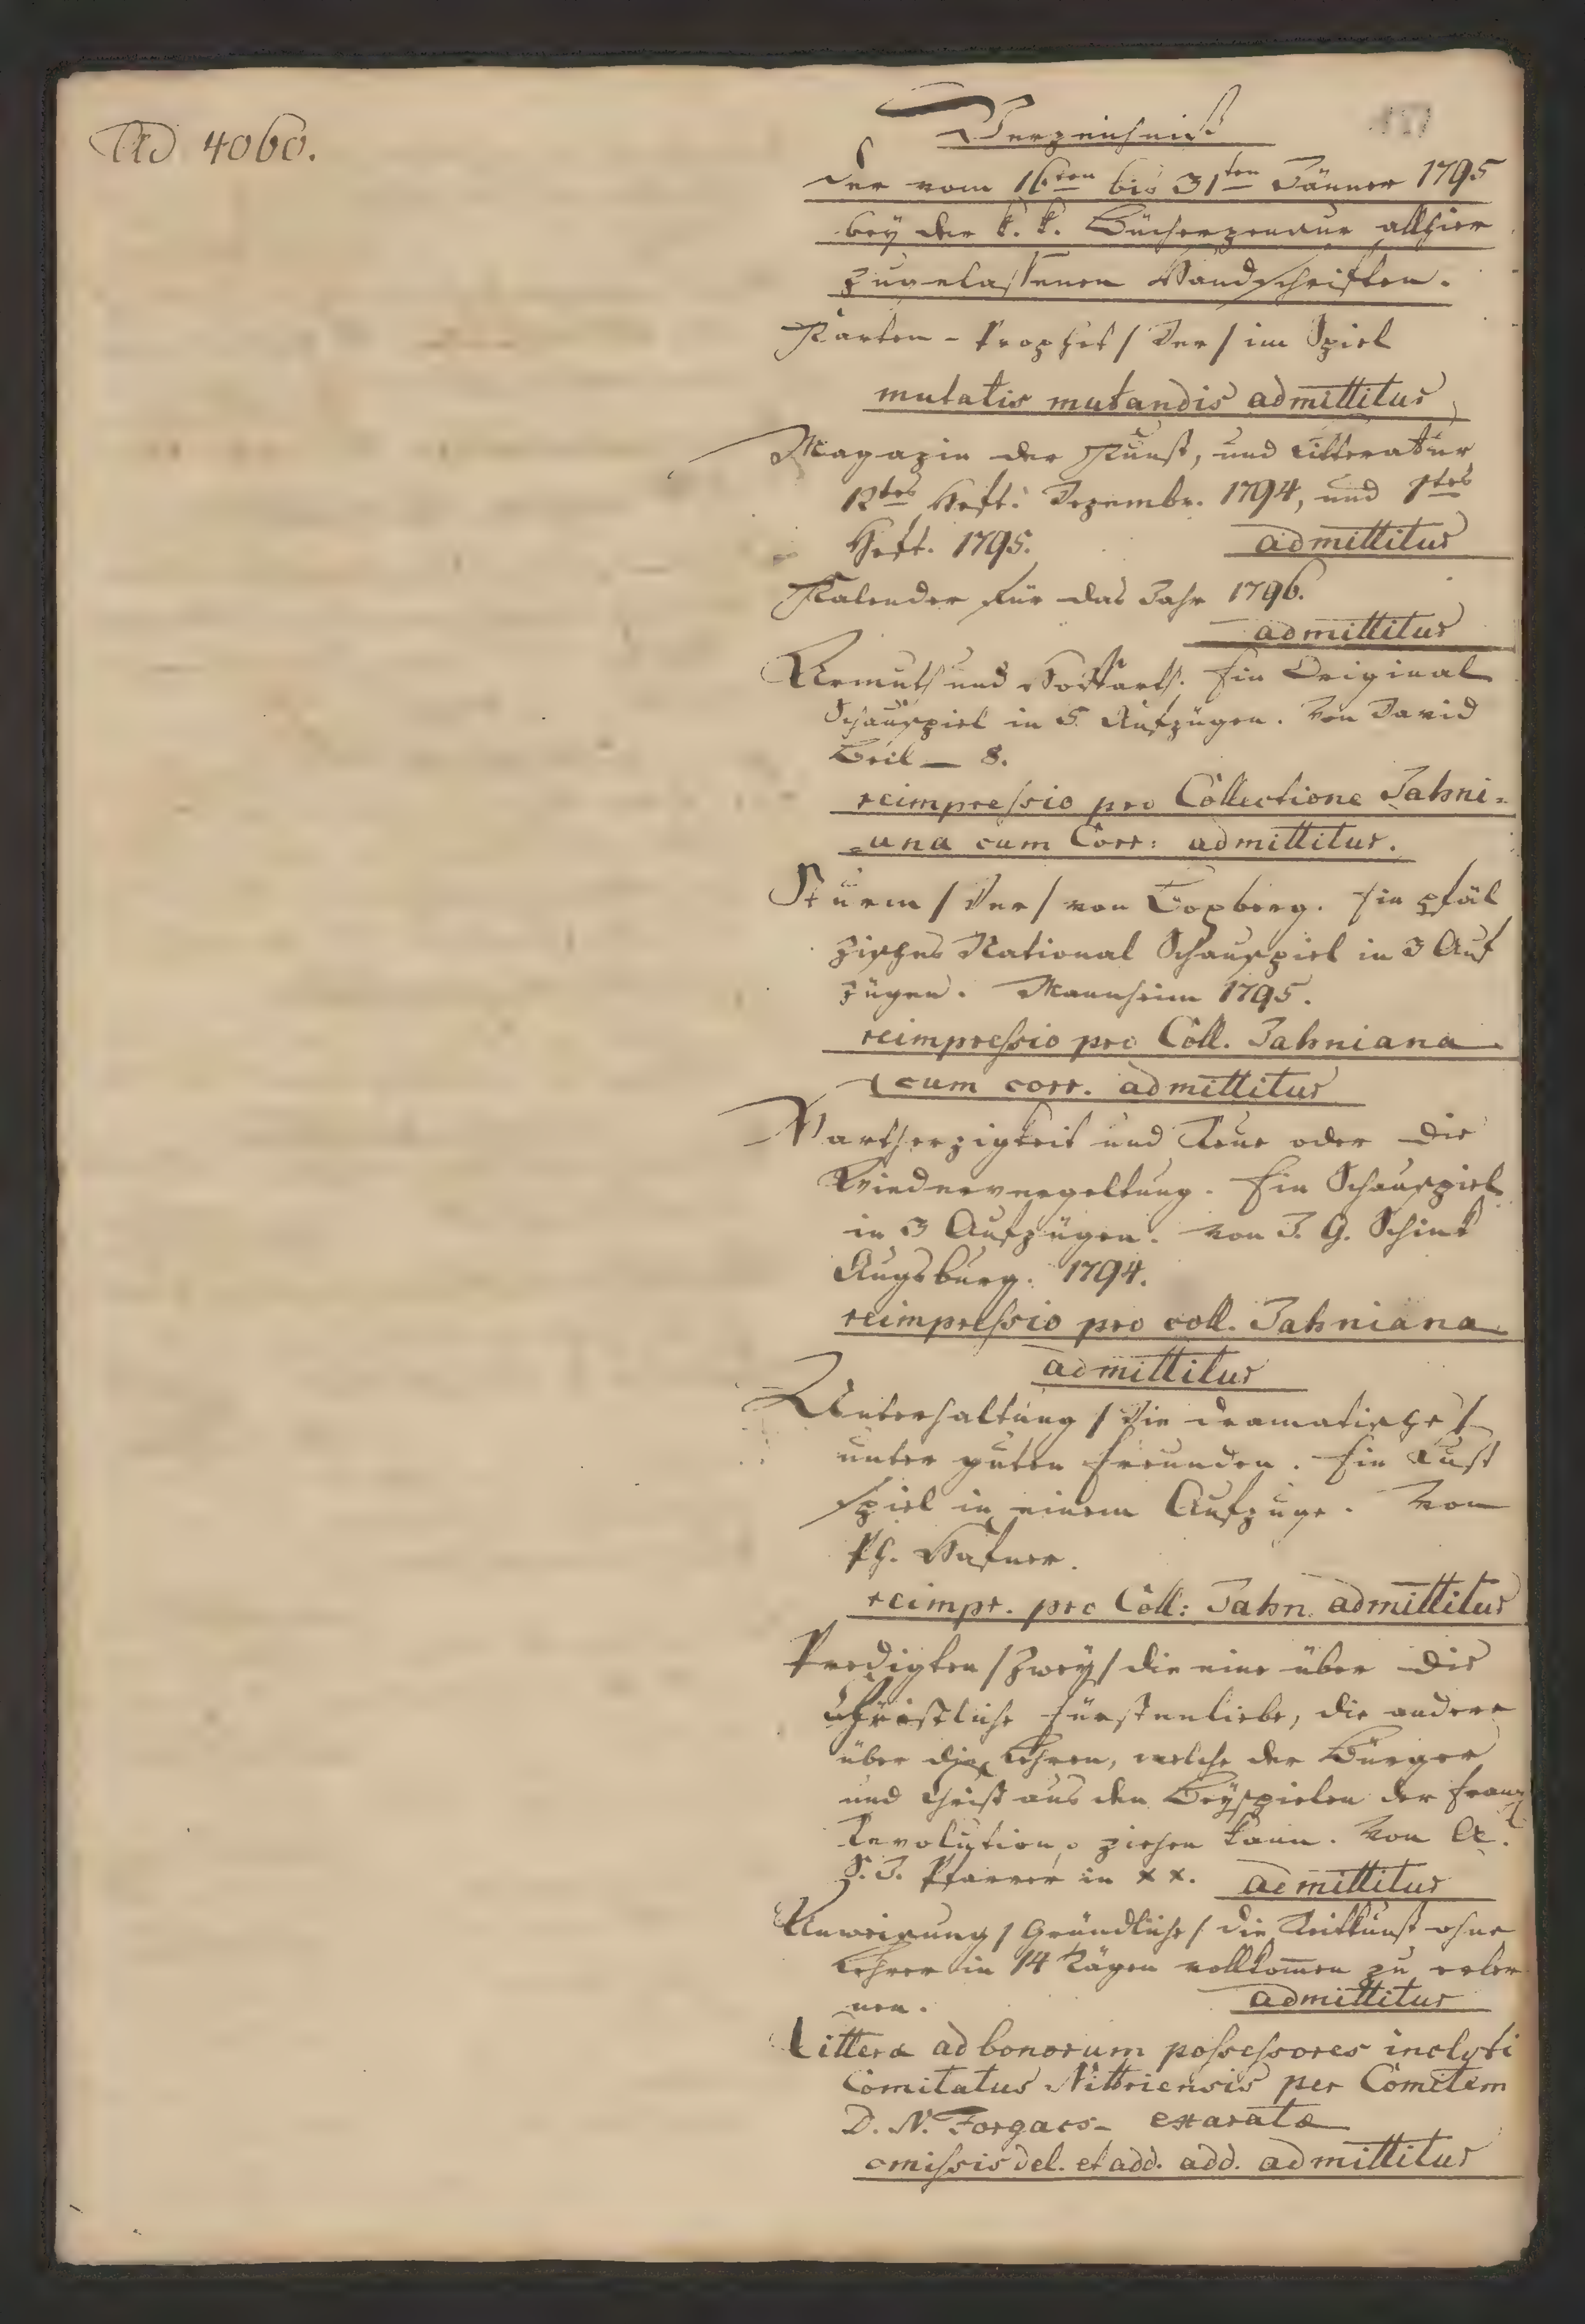 Ad 4060.
Verzeichniß
der vom 16ten bis 31ten Jänner 1795
bey der k. k. Bücherzensur allhier
zugelassenen Handschriften.
Karten-Prophet / Der / im Spiel
mutatis mutandis admittitur
Magazin der Kunst, und Litteratur
12tes Heft. Dezembr. 1794, und 1tes
Heft. 1795. admittitur
Kalender für das Jahr 1796.
admittitur
Armuth und Hoffarth. Ein Original
Schauspiel in 5 Aufzügen. Von David
Beil – 8.
reimpressio pro Collectione Jahni-
-ana cum Corr: admittitur.
Sturm / Der / von Boxberg. Ein pfäl
zisches National Schauspiel in 3 Auf
zügen. Mannheim 1795.
reimpressio pro Coll. Jahniana
cum corr. admittitur
Hartherzigkeit und Reue oder die
Wiedervergeltung. Ein Schauspiel
in 3 Aufzügen. von J. G. Schink
Augsburg. 1794.
reimpressio pro coll. Jahniana
admittitur
Unterhaltung / Die dramatische /
unter guten Freunden. Ein Lust
spiel in einem Aufzuge. Von
Ph. Hafner.
reimpr. pro Coll: Jahn. admittitur
Predigten / Zwey / die eine über die
christliche Fürstenliebe, die andere
über die Lehren, welche der Bürger
und Christ aus den Beyspielen der franz
Revolution, ziehen kann. Von A.
S. J. Pfarrer in x x. admittitur
Anweisung / Gründliche / die Reitkunst ohne
Lehrer in 14 Tägen vollkom̄en zu erler
nen. admittitur
Litteræ ad bonorum possessores inclyti
Comitatus Nittriensis per Comitem
D. N. Forgacs- exaratæ
omissis del. et add. add. admittitur